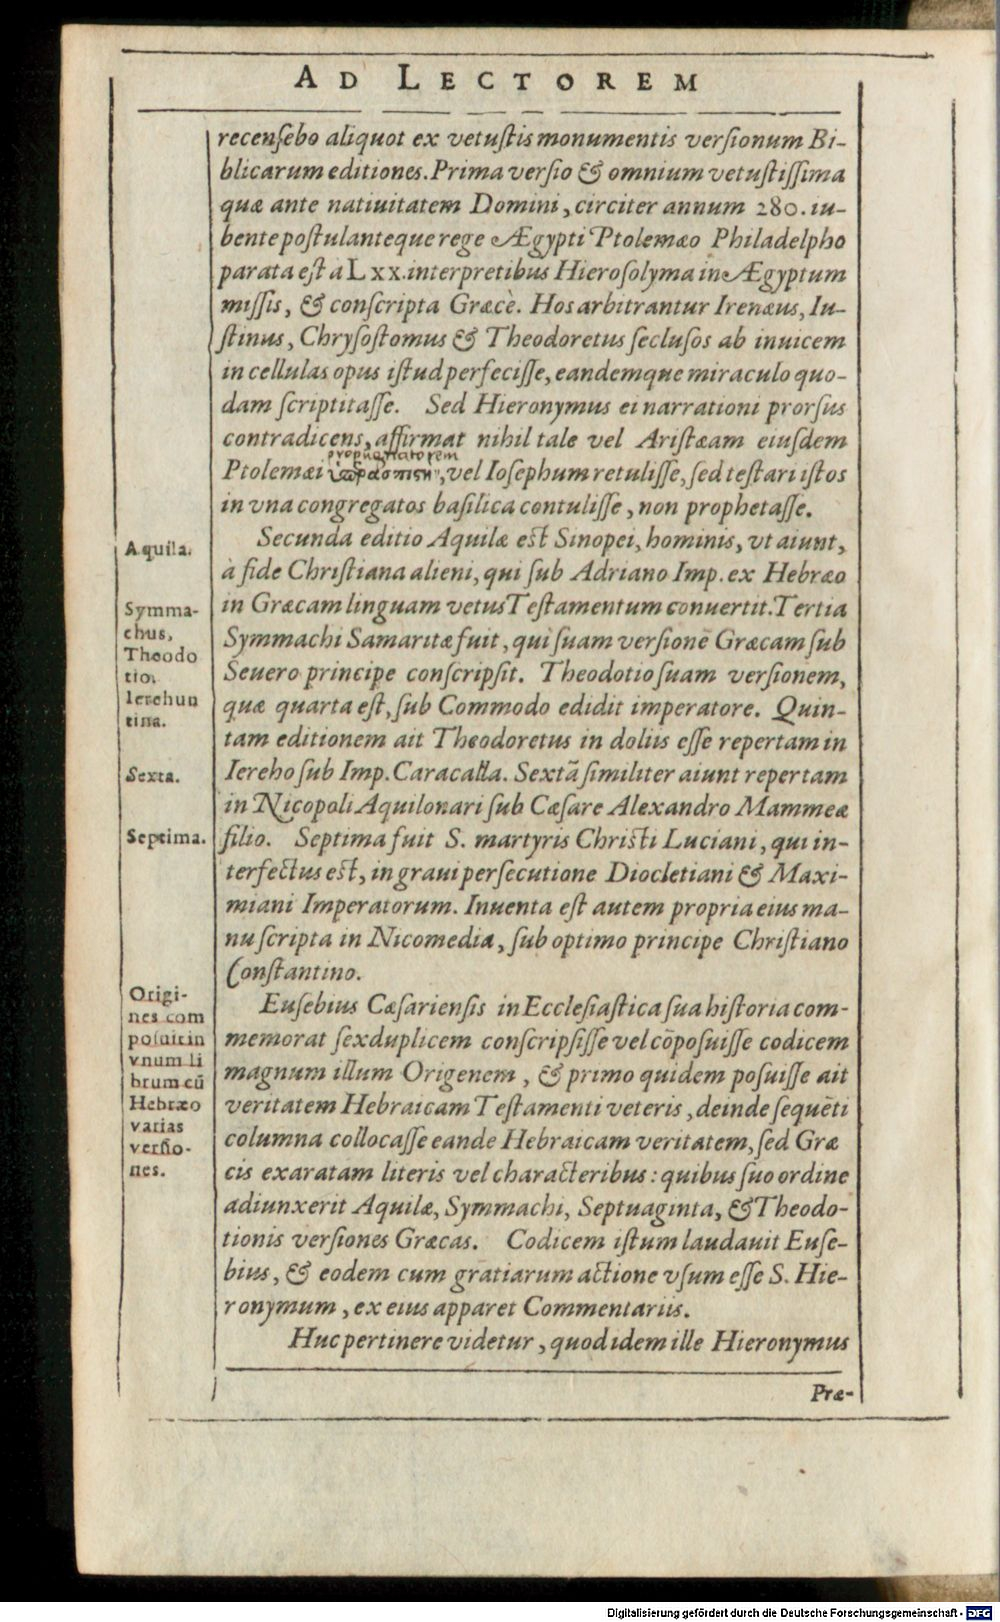 AD LECTOREM
recensebo aliquot ex vetustis monumentis versionum Bi-
blicarum editiones. Prima versio & omnium vetustissima
quæ ante natiuitatem Domini, circiter annum 280. iu-
bente postulanteque rege Ægypti Ptolemæo Philadelpho
parata est à Lxx. interpretibus Hierosolyma in Ægyptum
missis, & conscripta Græcè. Hos arbitrantur Irenæus, Iu-
stinus, Chrysostomus & Theodoretus seclusos ab inuicem
in cellulas opus istud perfecisse, eandemque miraculo quo-
dam scriptitasse. Sed Hieronymus ei narrationi prorsus
contradicens, affirmat nihil tale vel Aristæam eiusdem
propugnatorem
Ptolemæi vel Iosephum retulisse, sed testari istos
in vna congregatos basilica contulisse, non prophetasse.
Aquila.
Secunda editio Aquilæ est Sinopei, hominis, vt aiunt,
à fide Christiana alieni, qui sub Adriano Imp. ex Hebræo
Symma-
chus,
Theodo
tio.
Ierehun
tina.
in Græcam linguam vetus Testamentum conuertit. Tertia
Symmachi Samaritæ fuit, qui suam versionē Græcam sub
Seuero principe conscripsit. Theodotio suam versionem,
quæ quarta est, sub Commodo edidit imperatore. Quin-
tam editionem ait Theodoretus in doliis esse repertam in
Sexta.
Iereho sub Imp. Caracalla. Sextā similiter aiunt repertam
in Nicopoli Aquilonari sub Cæsare Alexandro Mammeæ
Septima.
filio. Septima fuit S. martyris Christi Luciani, qui in-
terfectus est, in graui persecutione Diocletiani & Maxi-
miani Imperatorum. Inuenta est autem propria eius ma-
nu scripta in Nicomedia, sub optimo principe Christiano
Constantino.
Origi-
nes com
posuit in
vnum li
brum cū
Hebræo
varias
versio-
nes.
Eusebius Cæsariensis in Ecclesiastica sua historia com-
memorat sexduplicem conscripsisse vel cōposuisse codicem
magnum illum Origenem, & primo quidem posuisse ait
veritatem Hebraicam Testamenti veteris, deinde sequēti
columna collocasse eande Hebraicam veritatem, sed Græ
cis exaratam literis vel characteribus: quibus suo ordine
adiunxerit Aquilæ, Symmachi, Septuaginta, & Theodo-
tionis versiones Græcas. Codicem istum laudauit Euse-
bius, & eodem cum gratiarum actione vsum esse S. Hie-
ronymum, ex eius apparet Commentariis.
Huc pertinere videtur, quod idem ille Hieronymus
Præ-
Digitalisierung gefördert durch die Deutsche Forschungsgemeinschaft - DFG